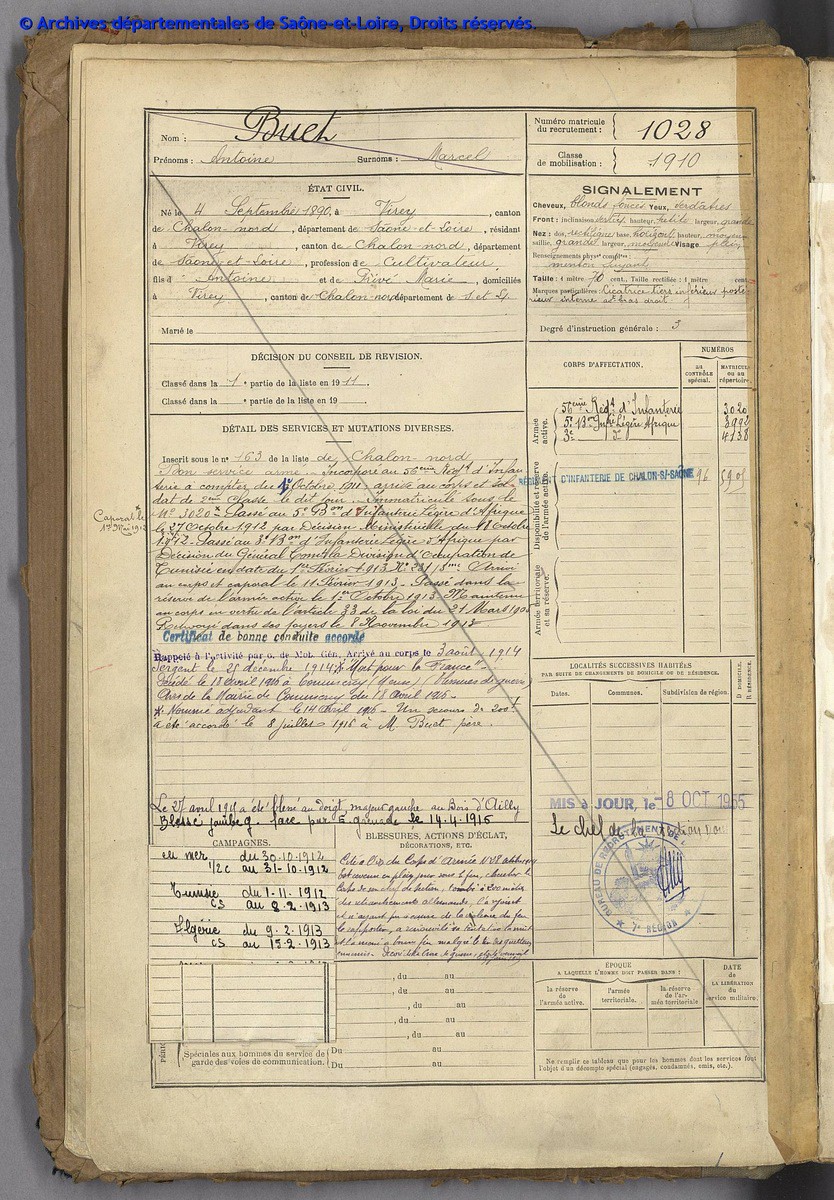 © Archives départementales de Saône-et-Loire, Droits réservés.
Nom : Buet
Prénoms : Antoine Surnoms : Marcel
Numéro matricule du recrutement : 1028
Classe de mobilisation : 1910
ÉTAT CIVIL.
Né le 4 Septembre 1890, à Virey, canton
de Chalon-nord, département de Saône-et-Loire, résidant
à Virey, canton de Chalon-nord, département
de Saône-et-Loire, profession de Cultivateur,
fils d' Antoine et de Privé Marie, domiciliés
à Virey, canton de Chalon-nord département de S. et L.
Marié le
SIGNALEMENT
Cheveux, blonds foncés Yeux, verdâtres
Front : inclinaison hauteur, petite largeur, grande
Nez : dos, rectiligne base, horizont hauteur, moyenne
saillie, grande largeur, Visage plein
Renseignements phys. compl. :
menton fuyant
Taille : 1 mètre 70 cent. Taille rectifiée : 1 mètre cent.
Marques particulières : Cicatrice tiers inférieur posté-
rieur interne bras droit.
Degré d'instruction générale : 3
DÉCISION DU CONSEIL DE REVISION.
Classé dans la 1e partie de la liste en 1911.
Classé dans la e partie de la liste en 19
DÉTAIL DES SERVICES ET MUTATIONS DIVERSES.
Inscrit sous le n° 163 de la liste de Chalon-nord
Bon service armé - Incorporé au 56eme Régt d'Infan
terie à compter du 1er Octobre 1911 - arrivé au corps et sol
dat de 2me Classe le dit jour - Immatriculé sous le
N° 3020 Passé au 5e Bon d'Infanterie Légère d'Afrique
le 27 Octobre 1912 par Décision Ministérielle du 18 Octobre
1912 - Passé au 3e Bon d'Infanterie Légère d'Afrique par
Décision du Général Comt la Division d'Occupation de
Tunisie en date du 1er Février 1913 Arrivé
au corps et caporal le 11 Février 1913 - Passé dans la
réserve de l'armée active le 1er Octobre 1913. Maintenu
au corps en vertu de l'article 33 de la loi du 21 Mars 1905
Renvoyé dans ses foyers le 8 Novembre 1913
Caporal le
1er Mai 1912
Certificat de bonne conduite accordé
Rappelé à l'activité par o. de Mob. Gén. Arrivé au corps le 3 août 1914
Sergent le 25 décembre 1914 * Mort pour la France -
Décédé le 18 avril 1916 à Commercy (Meuse) (blessures de guerre)
Avis de la Mairie de Commercy du 18 Avril 1916 -
* Nommé adjudant le 14 Avril 1916 - Un secours de 200f
a été accordé le 8 juillet 1916 à M. Buet père.
Le 27 avril 191 a été blessé au doigt majeur gauche au Bois d'Ailly
Blessé jambe g. face par grenade le 14.4.1916
CORPS D'AFFECTATION.
NUMÉROS
au CONTRÔLE spécial.
MATRICULE ou au répertoire.
Armée active.
56eme Régt d'Infanterie 3020
5e Bon Infrie Légère Afrique 3992
3e do 4138
Disponibilité et réserve de l'armée active.
RÉGIMENT D'INFANTERIE DE CHALON-S/-SAÔNE
Armée territoriale et sa réserve.
LOCALITÉS SUCCESSIVES HABITÉES
PAR SUITE DE CHANGEMENTS DE DOMICILE OU DE RÉSIDENCE.
Dates. Communes. Subdivision de région. D DOMICILE. R RÉSIDENCE.
MIS à JOUR, le - 8 OCT 1955
Le chef de
BUREAU DE RECRUTEMENT DE
7e RÉGION
CAMPAGNES.
en mer du 30-10-1912
1/2 c au 31-10-1912
Tunisie du 1-11-1912
CS au 8-2-1913
Algérie du 9-2-1913
CS au 15-2-1913
BLESSURES, ACTIONS D'ÉCLAT,
DÉCORATIONS, ETC.
Est en plein jour sous le feu, chercher le
Corps de son chef de section, tombé à 200 mètres
des retranchements allemands, l'a rejoint
et n'ayant pu à cause de la violence du feu
le rapporter, a renouvelé sa tentative la nuit
et l'a menée à bonne fin malgré
, du au
, du au
, du au
, du au
, du au
Du au
Du au
Spéciales aux hommes du service de
garde des voies de communication.
ÉPOQUE
A LAQUELLE L'HOMME DOIT PASSER DANS :
la réserve de l'armée active.
l'armée territoriale.
la réserve de l'armée territoriale
DATE de LA LIBÉRATION du service militaire.
Ne remplir ce tableau que pour les hommes dont les services font
l'objet d'un décompte spécial (engagés, condamnés, omis, etc.).